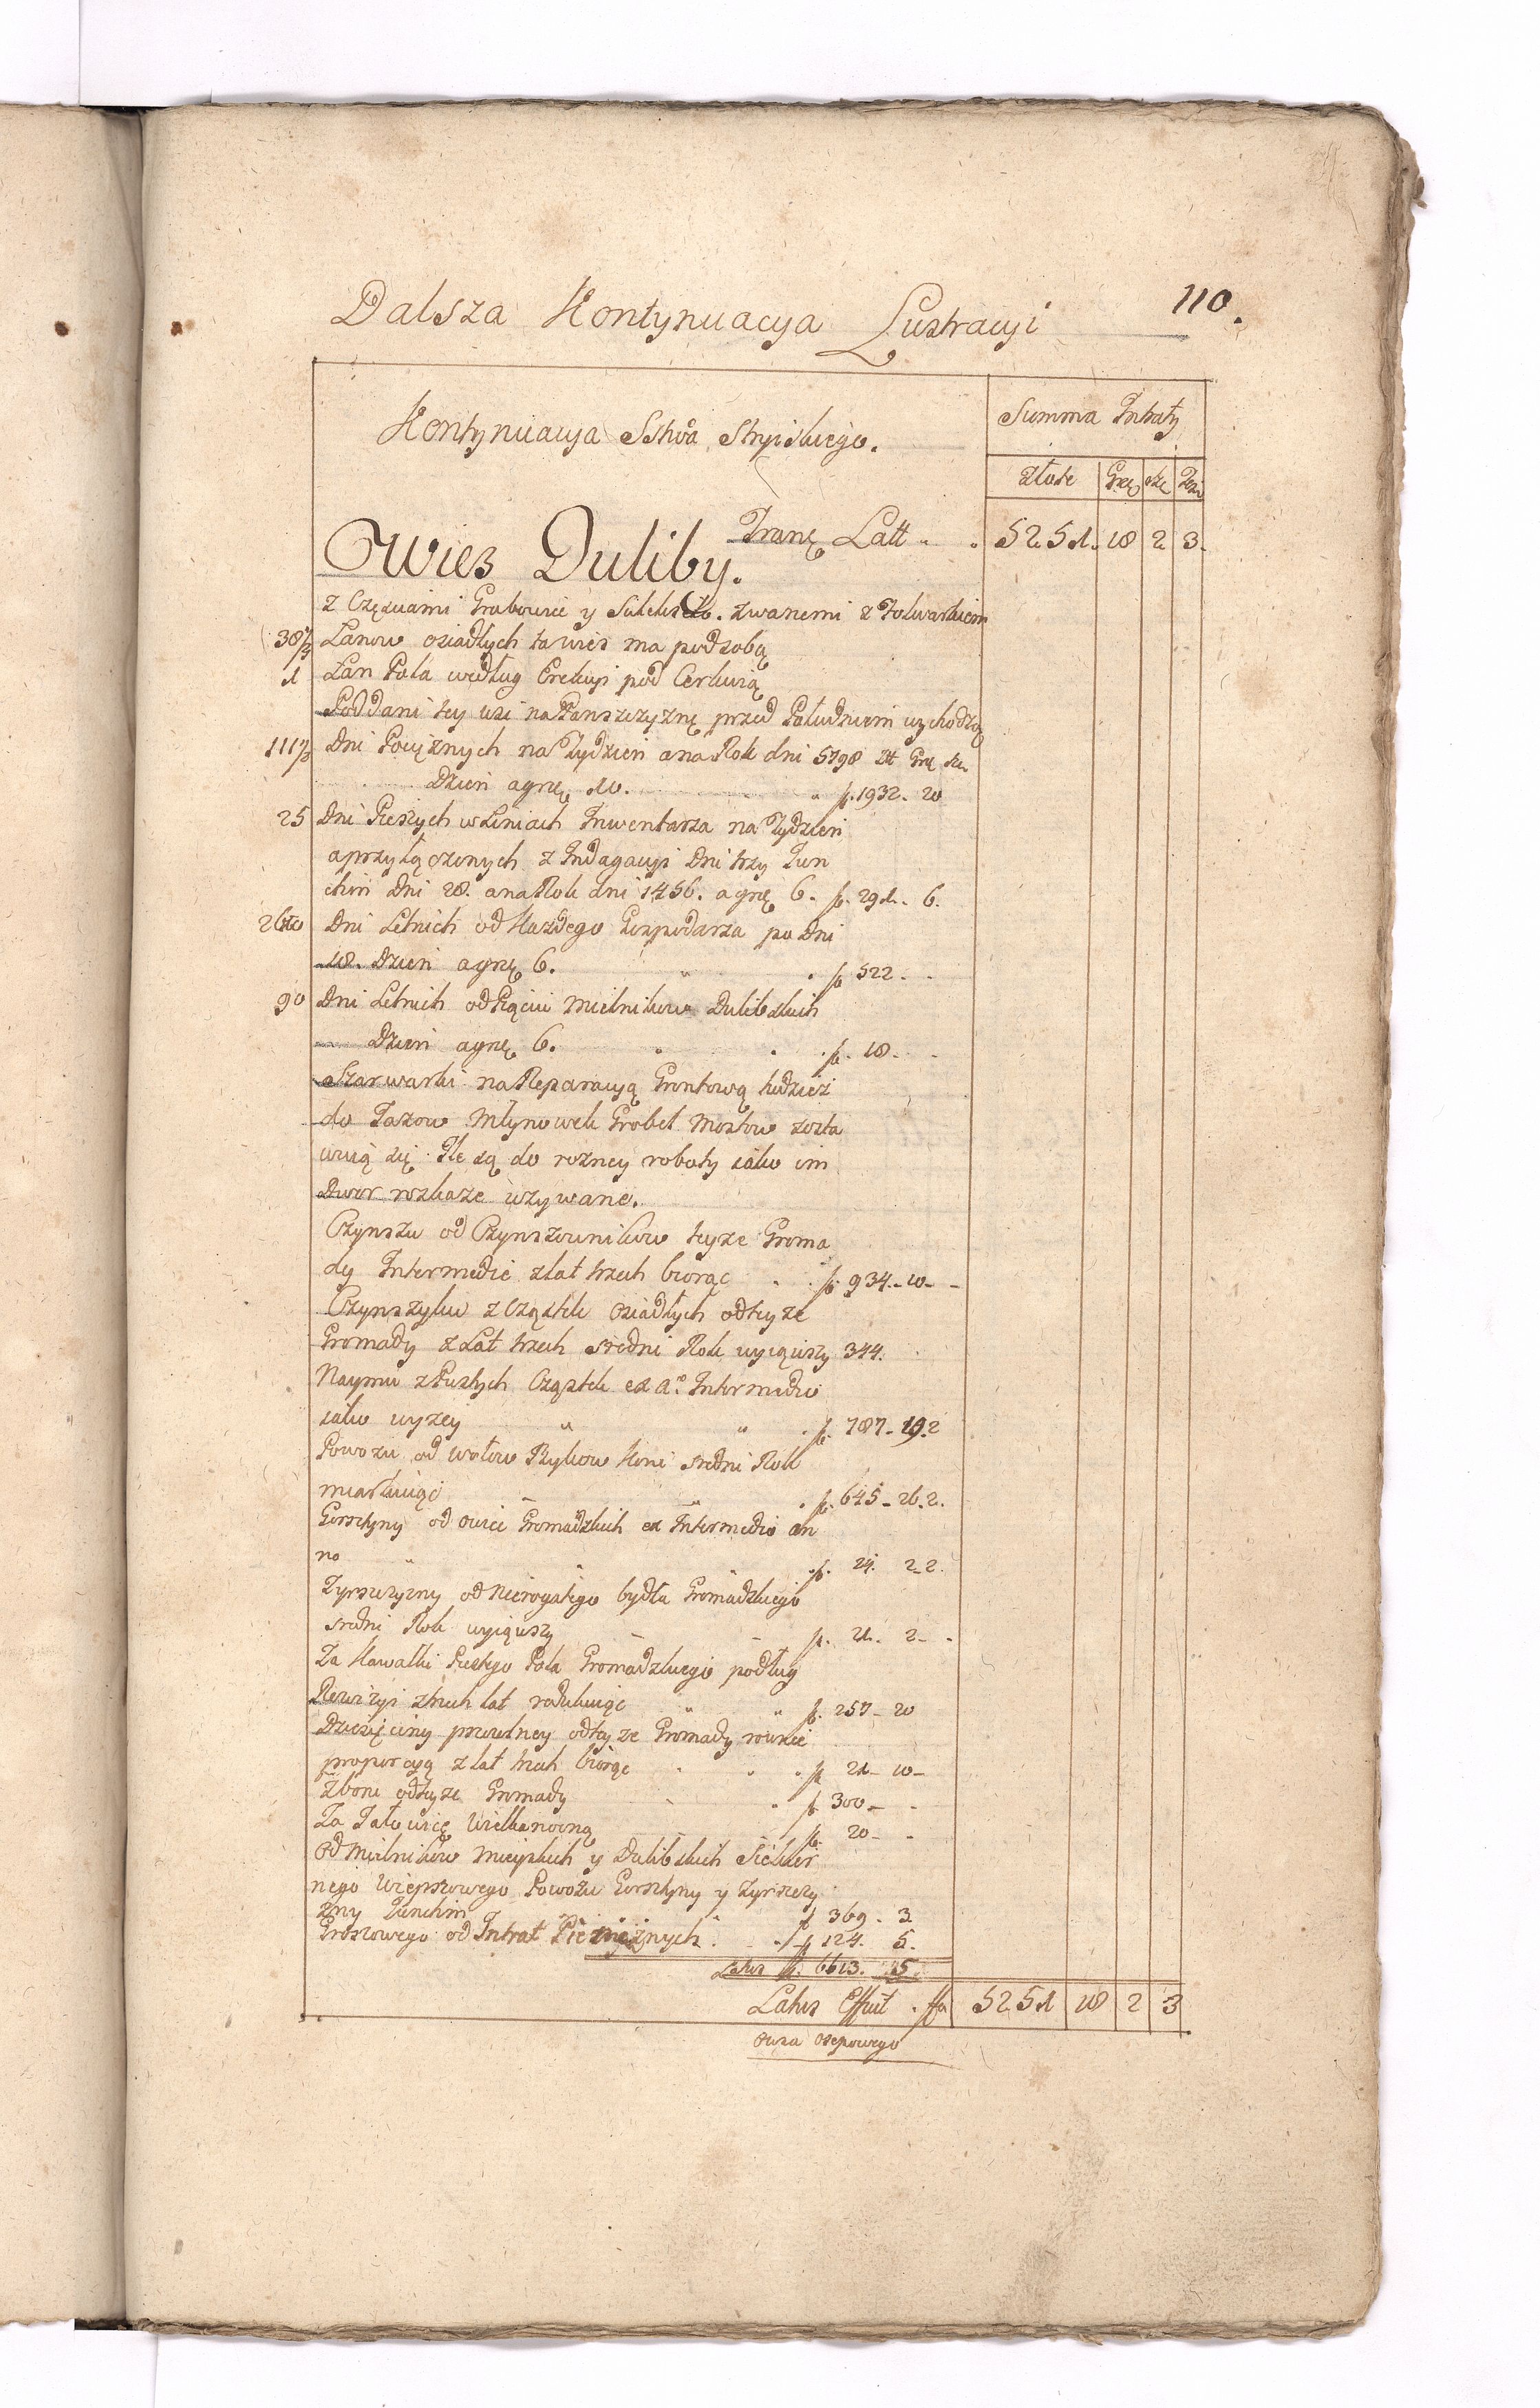 110.
Dalsza Kontynuacya Lustracyi
Kontynuacya Sstwa Stryiskiego.
Summa Intraty
złote Grę sze
Tranę Latt 5251. 18 2 3.
Wies Duliby.
z Częsciami Grabowce y zwanemi z Folwarkiem
Łanow osiadłych ta wies ma pod sobą
1 Łan Pola według Erekcyi pod Cerkwią
Poddani tey wsi na Panszczyznę przed Południem wychodzą
Dni Pociężnych na Tydzien a na Rok dni 5798 Zł Grę sze
Dzien a grę 10. f. 1932. 20
25 Dni Pieszych w Liniach Inwentarza na Tydzien
a przyłączonych z Indagacyi Dni trzy Iun
ctim Dni 28. a na Rok dni 1456. a grę 6. f. 291. 6.
2610 Dni Letnich od Kazdego Gospodarza po dni
18. Dzien a grę 6. f 522.
90 Dni Letnich od Piąciu Mielnikow Dulibskich
Dzien a grę 6. f. 18.
Szarwarki na Reparacyą Gontową tudziez
do Jazow Młynowek Grobel Mostow zosta
wuią się Ile są do rozney roboty iako im
Dwor rozkaze uzywane.
Czynszu od Czynszownikow teyze Groma
dy Intermedie z lat trzech biorąc f. 934. 10
Czynszyku z Cząstek osiadłych od teyze
Gromady z Lat trzech sredni Rok wyiąwszy 344.
Naymu z Pustych Cząstek ex Aº Intermedio
iako wyzey f. 787. 19. 2
Powozu od Wołow Bykow Koni sredni Rok
miarkuiąc f. 645. 26. 2.
Gorsztyny od owiec Gromadzkich ex Intermedio an
no f. 24. 2. 2.
Zyrszczyzny od Nierogatego bydła Gromadzkiego
sredni Rok wyiąwszy f. 21. 2.
Za Kawałki Pustego Pola Gromadzkiego podług
Rewizyi z trzech lat redukuiąc f. 257. 20
Dziesięciny pszczelney od teyze Gromady rownie
proporcyą z lat trzech biorąc f. 21. 10
Zboru od teyze Gromady f 300
Za Jałowicę Wielkanocną f. 20
Od Mielnikow Mieyskich y Dulibskich Siekier
nego Wieprzowego Powozu Gorsztyny y Zyrszczy
zny Iunctim f 369. 3
Groszowego od Intrat Pieniężnych f 124. 5.
Latus f. 6613. 15
Latus Effuit. ffa 5251 18 2 3
Owsa Osepowego